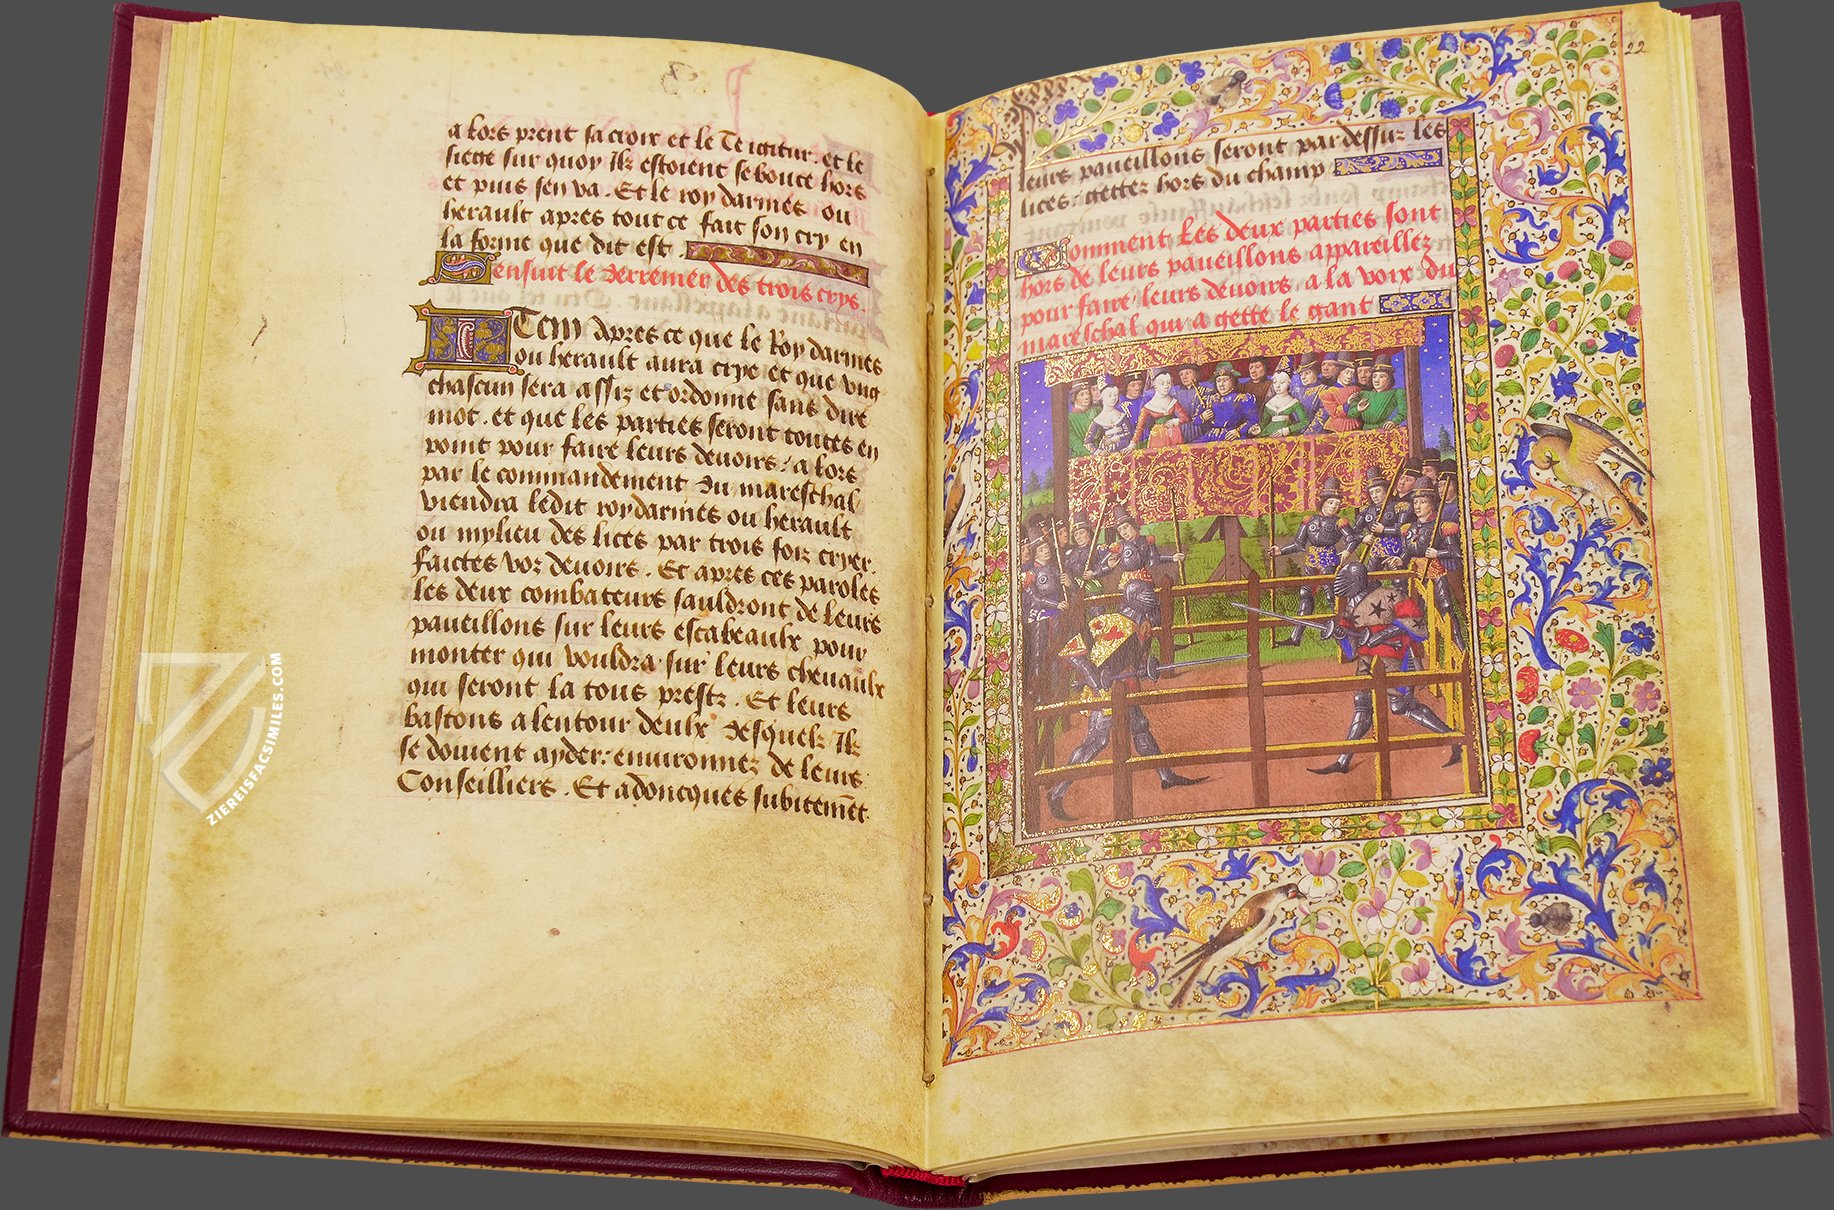 a lors prent sa croix et le Te igitur . et le
siege sur quoy Ilz estoient se boute hors
et puis sen va . Et le roy darmes ou
herault apres tout ce fait son cry en
la forme que dit est .
Sensuit le derrenier des trois crys .
Item Apres ce que le Roy darmes
ou herault aura crye et que ung
chascun sera assiz et ordonne sans dire
mot . et que les parties seront toutes en
point pour faire leurs devoirs : a lors
par le commandement du mareschal
viendra ledit roy darmes ou herault
ou mylieu des lices par trois foiz cryer .
faictes voz devoirs . Et apres ces paroles
les deux combateurs sauldront de leurs
paveillons sur leurs escabeaulx pour
monter qui vouldra sur leurs chevaulx
qui seront la tous prestz . Et leurs
bastons alentour deulx desquelz Ilz
se doivent ayder : environnez de leurs
Conseilliers . Et adoncques subitemēt
22
leurs paveillons seront par dessuz les
lices : gettez hors du champ
Comment Les deux parties sont
hors de leurs paveillons appareillez
pour faire leurs devoirs a la voix du
mareschal qui a gette le gant
ZIEREISFACSIMILES.COM